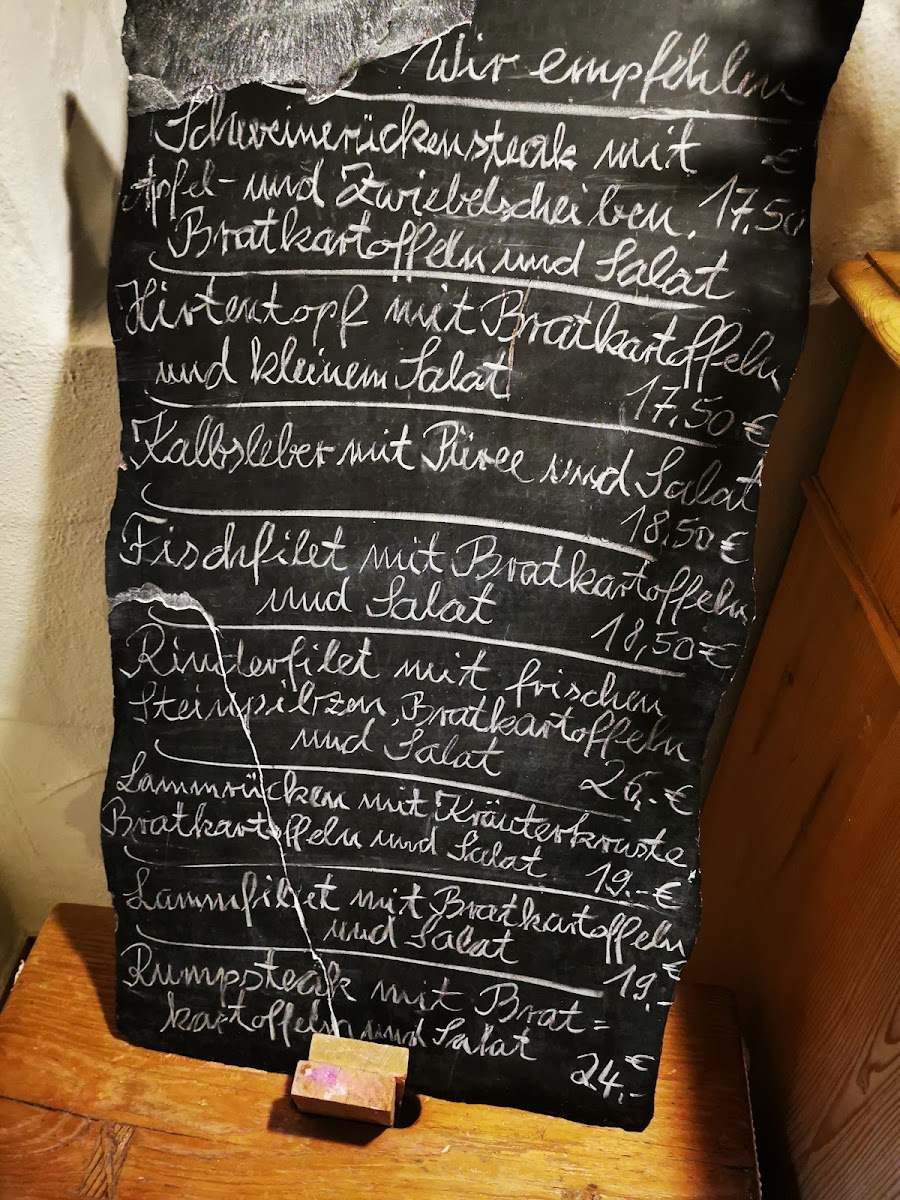 Wir empfehlen
Schweinerückensteak mit €
Apfel- und Zwiebelscheiben, 17,50
Bratkartoffeln und Salat
Hirtentopf mit Bratkartoffeln
und kleinem Salat
17,50 €
Kalbsleber mit Püree und Salat
18,50 €
Fischfilet mit Bratkartoffeln
und Salat 18,50 €
Rinderfilet mit frischen
Steinpilzen, Bratkartoffeln
und Salat 26,- €
Lammrücken mit Kräuterkruste
Bratkartoffeln und Salat 19,- €
Lammfilet mit Bratkartoffeln
und Salat 19,- €
Rumpsteak mit Brat=
kartoffeln und Salat
24,- €